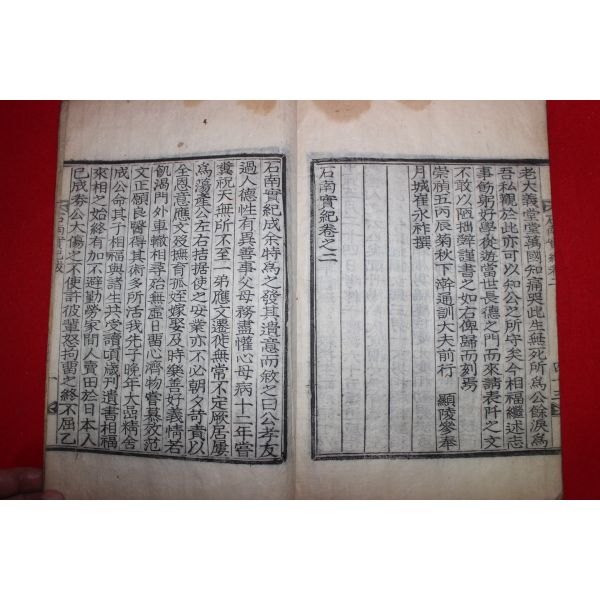 老大義堂堂萬國知痛哭此生無死所爲公餘淚爲
吾私觀於此亦可以知公之所守矣今相福繼述志
事飭躬好學從遊當世長德之門而來請表阡之文
不敢以陋拙辭謹書之如右俾歸而刻焉
崇禎五丙辰菊秋下澣通訓大夫前行 顯陵參奉
月城崔永祚撰
石南實紀卷之二
石南實紀成余特爲之發其遺意而敘之曰公孝友
過人德性有異善事父母務盡懽心母病十二年嘗
糞祝天無所不至一弟應文遷徙無常不定厥居屢
爲蕩產公左右拮据使之安業亦不必朝夕苛責以
全恩意應文歿撫育孤姪嫁娶及時樂善好義情若
飢渴門外車轍相尋殆無虛日留心濟物嘗慕效范
文正願良醫得其術多所活我先子晚年大品精舍
成公命其子相福與諸生共受讀頃歲刊遺書相福
來相之始終有加不避勤勞家間人賣田於日本人
已成券公大傷之不使許彼輩怒拘留之終不屈乙
石南實紀跋